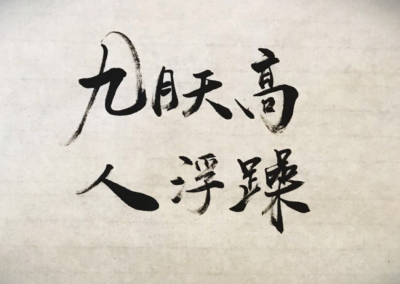 九月天高
人浮躁